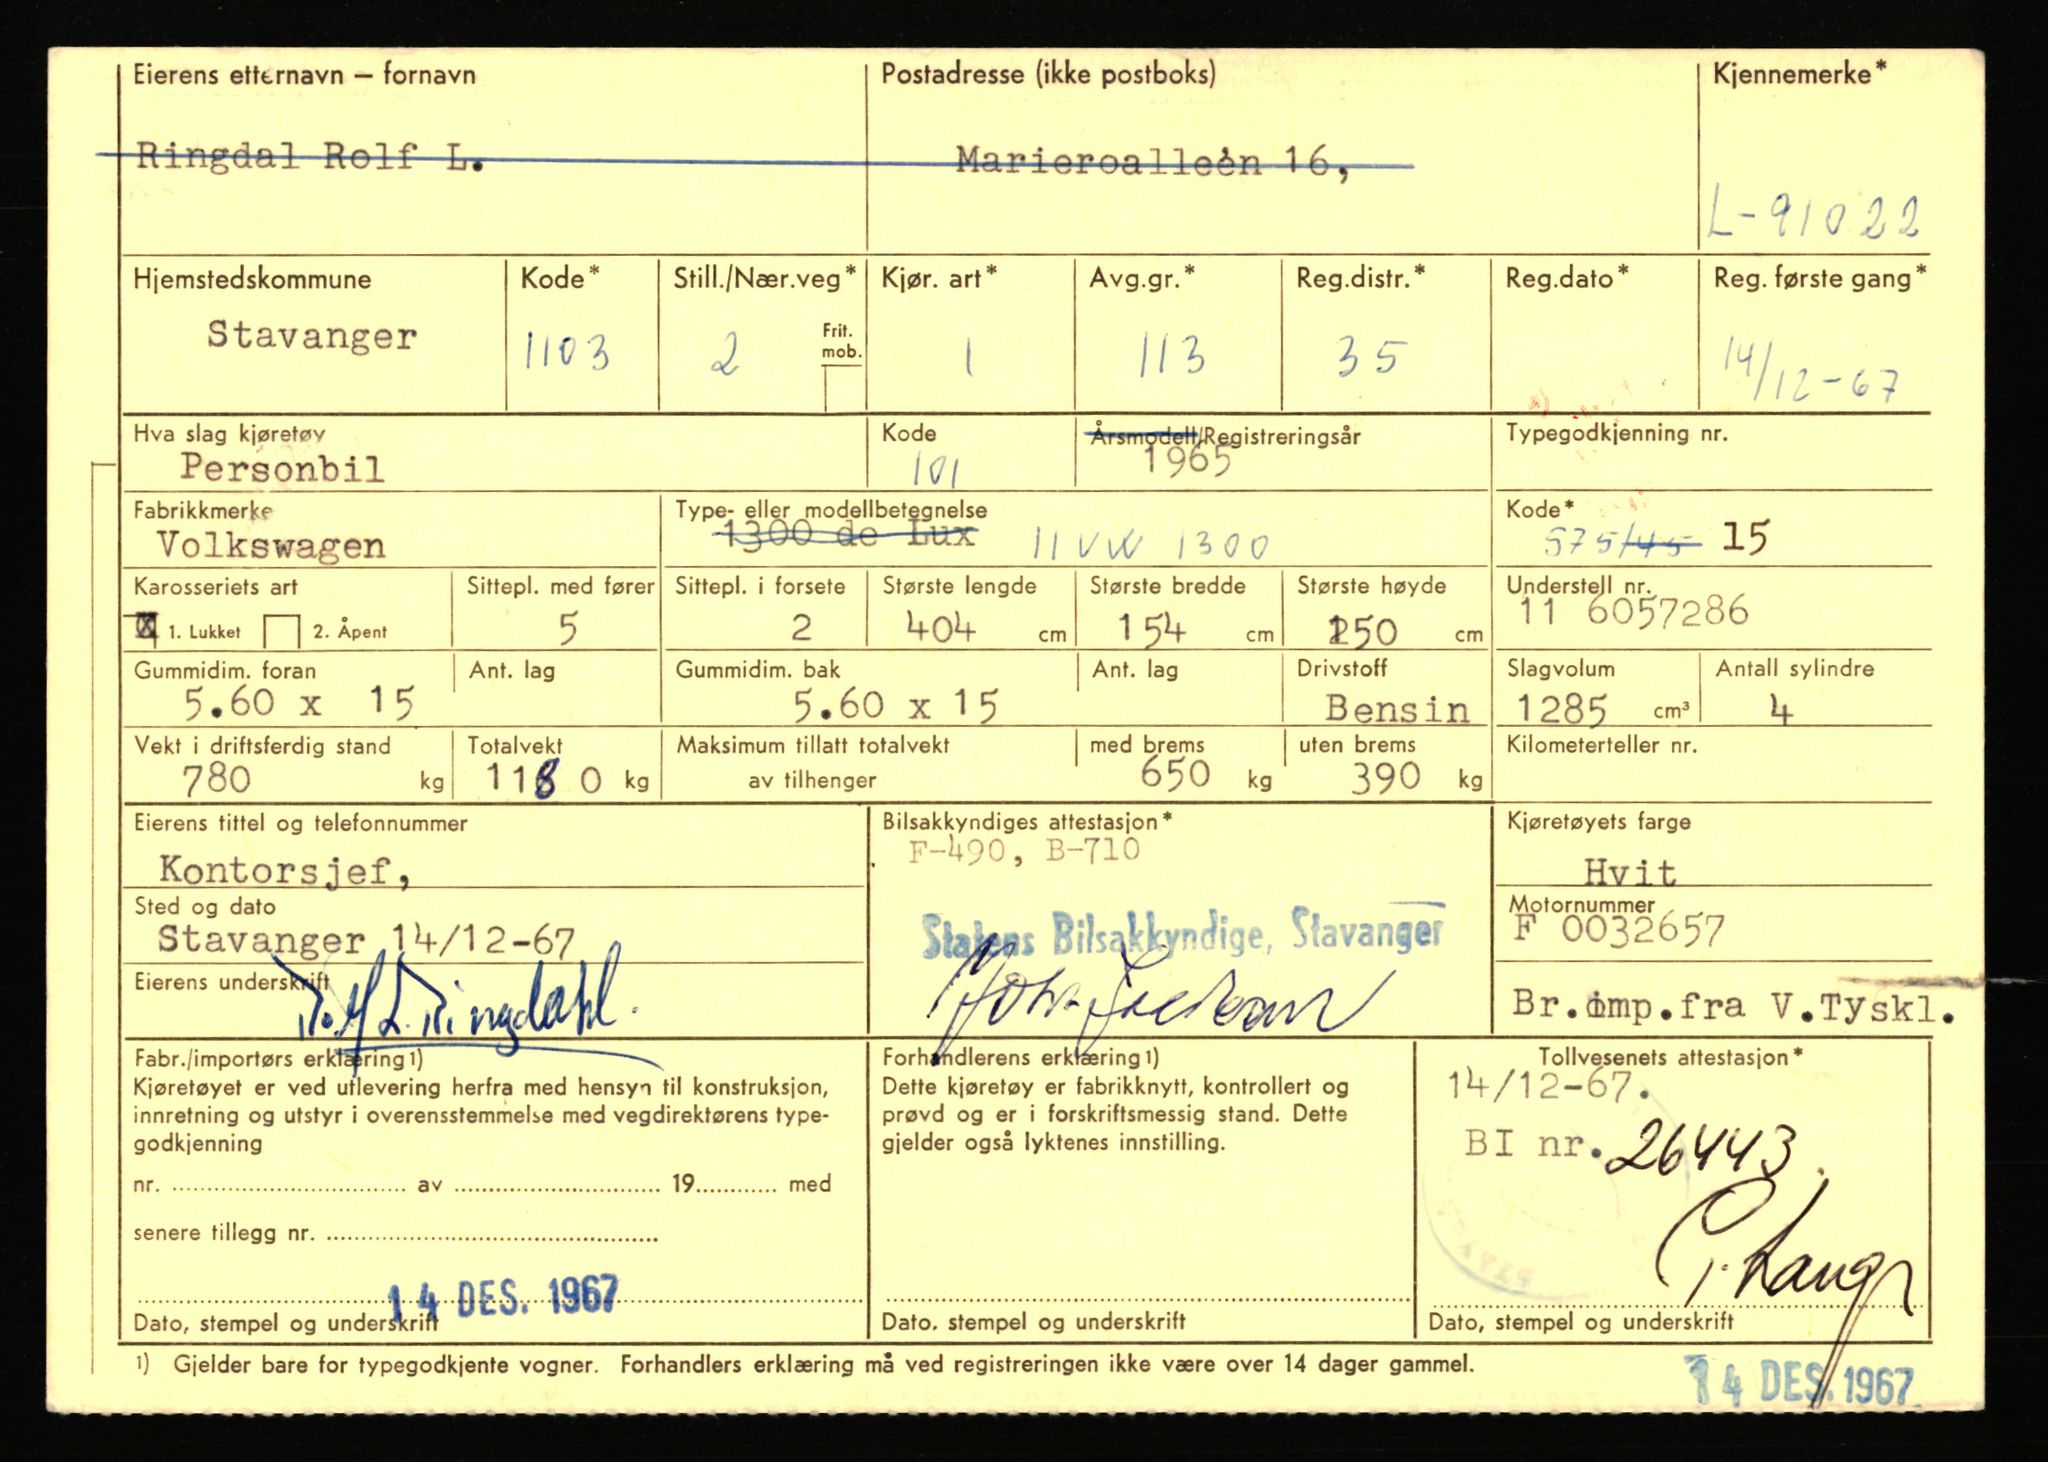 Eierens etternavn – fornavn Postadresse (ikke postboks) Kjennemerke*
Ringdal Rolf L. Marieroalleén 16,
L-91022
Hjemstedskommune Kode* Still./Nær.veg* Kjør. art* Avg.gr.* Reg.distr.* Reg.dato* Reg. første gang*
Stavanger 1103 2 Frit. mob. 1 113 35 14/12-67
Hva slag kjøretøy Kode Årsmodell/Registreringsår Typegodkjenning nr.
Personbil 101 1965
Fabrikkmerke Type- eller modellbetegnelse Kode*
Volkswagen 1300 de Lux 11 VW 1300 575/45 15
Karosseriets art Sittepl. med fører Sittepl. i forsete Største lengde Største bredde Største høyde Understell nr.
X 1. Lukket 2. Åpent 5 2 404 cm 154 cm 150 cm 11 6057286
Gummidim. foran Ant. lag Gummidim. bak Ant. lag Drivstoff Slagvolum Antall sylindre
5.60 x 15 5.60 x 15 Bensin 1285 cm³ 4
Vekt i driftsferdig stand Totalvekt Maksimum tillatt totalvekt med brems uten brems Kilometerteller nr.
780 kg 1180 kg av tilhenger 650 kg 390 kg
Eierens tittel og telefonnummer Bilsakkyndiges attestasjon* Kjøretøyets farge
F-490, B-710
Kontorsjef, Hvit
Sted og dato Motornummer
Stavanger 14/12-67 Statens Bilsakkyndige, Stavanger F 0032657
Eierens underskrift
Rolf L. Ringdahl. Br.imp.fra V.Tyskl.
Fabr./importørs erklæring 1) Forhandlerens erklæring 1) Tollvesenets attestasjon*
Kjøretøyet er ved utlevering herfra med hensyn til konstruksjon, Dette kjøretøy er fabrikknytt, kontrollert og 14/12-67.
innretning og utstyr i overensstemmelse med vegdirektørens type- prøvd og er i forskriftsmessig stand. Dette
godkjenning gjelder også lyktenes innstilling. BI nr. 26443.
nr. av 19 med
senere tillegg nr.
14 DES. 1967
Dato, stempel og underskrift Dato. stempel og underskrift Dato, stempel og underskrift
1) Gjelder bare for typegodkjente vogner. Forhandlers erklæring må ved registreringen ikke være over 14 dager gammel.
14 DES. 1967